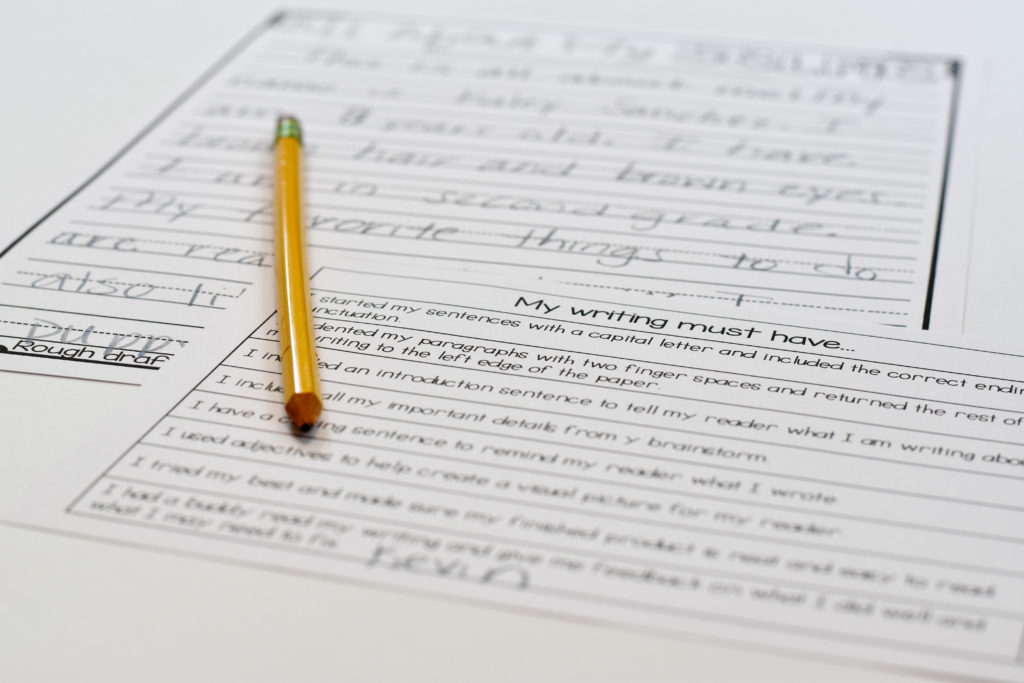 All About My
This is all about me! My
name is Sanchez. I
am 8 years old. I have
brown hair and brown eyes.
I am in second grade.
My favorite things to do
are rea
also li
Rough draf
My writing must have...
started my sentences with a capital letter and included the correct endin
nctuation.
dented my paragraphs with two finger spaces and returned the rest of
m writing to the left edge of the paper.
I in ed an introduction sentence to tell my reader what I am writing abou
I inclu all my important details from y brainstorm.
I have a c ing sentence to remind my reader what I wrote.
I used adjectives to help create a visual picture for my reader.
I tried my best and made sure my finished product is neat and easy to read.
I had a buddy read my writing and give me feedback on what I did well and
what I may need to fix. Kevin